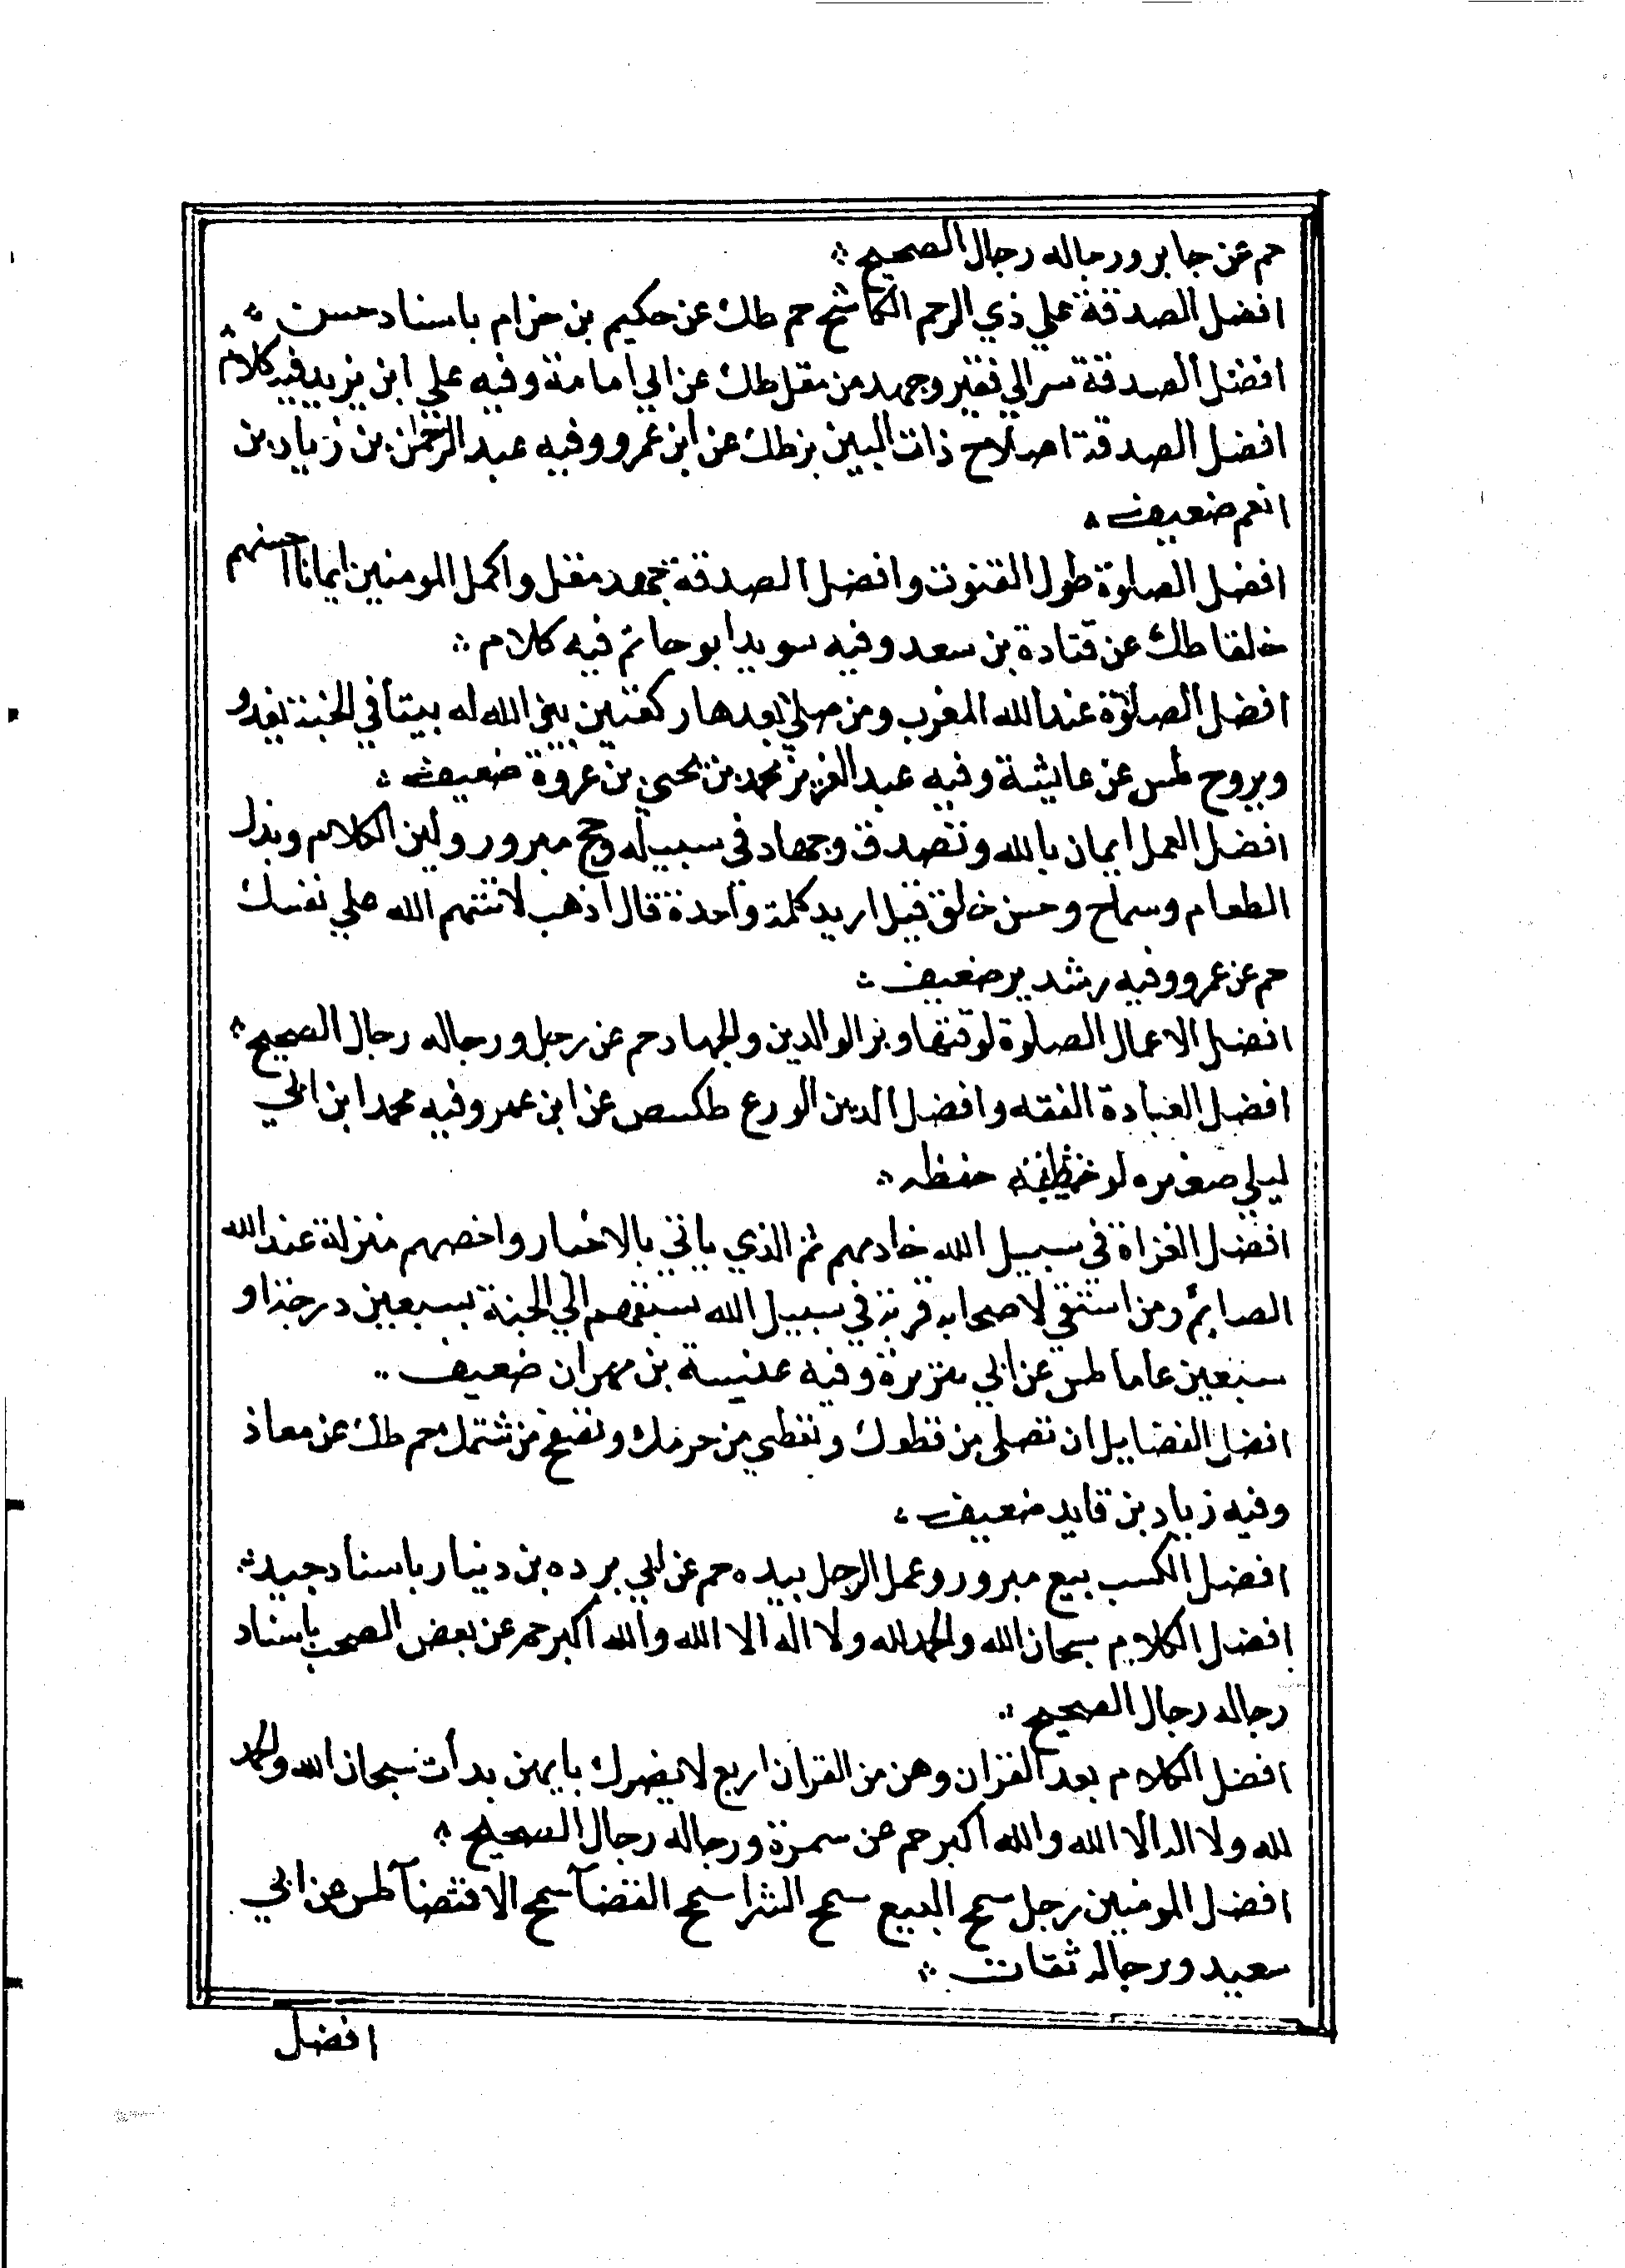 حم عن جابر ورجاله رجال الصحيح
افضل الصدقة علي ذي الرحم الكاشح حم طك عن حكيم بن حزام باسناد حسن
افضل الصدقة سر الي فقير وجهد من مقل طك عن ابي امامة وفيه علي ابن يزيد فيه كلام
افضل الصدقة اصلاح ذات البين بز طك عن ابن عمرو وفيه عبد الرحمن بن زياد بن
انعم ضعيف
افضل الصلوة طول القنوت وافضل الصدقة جهد مقل واكمل المومنين ايمانا احسنهم
خلقا طك عن قتادة بن سعد وفيه سويد ابو حاتم فيه كلام
افضل الصلوة عند الله المغرب ومن صلي بعدها ركعتين بني الله له بيتا في الجنة يغدو
ويروح طس عن عايشة وفيه عبد العزيز محمد بن يحيي بن عروة ضعيف
افضل العمل ايمان بالله وتصدق وجهاد في سبيله وحج مبرور ولين الكلام وبذل
الطعام وسماح وحسن خلق قيل اريد كلمة واحدة قال اذهب لا تتهم الله علي نفسك
حم عن عمرو وفيه رشدير ضعيف
افضل الاعمال الصلوة لوقتها وبر الوالدين والجهاد حم عن رجل ورجاله رجال الصحيح
افضل العبادة الفقه وافضل الدين الورع طكسص عن ابن عمر وفيه محمد ابن ابي
ليلي ضعفوه لسوء حفظه
افضل الغزاة في سبيل الله خادمهم ثم الذي ياتي بالاخبار واخصهم منزلة عند الله
الصايم ومن استقي لاصحابه قربة في سبيل الله سبقهم الي الجنة بسبعين درجة او
سبعين عاما طس عن ابي هريرة وفيه عنبسة بن مهران ضعيف
افضل الفضايل ان تصل من قطعك وتعطي من حرمك وتصفح من شتمك حم طك عن معاذ
وفيه زياد بن قايد ضعيف
افضل الكسب بيع مبرور وعمل الرجل بيده حم عن ابي برده بن دينار باسناد جيد
افضل الكلام سبحان الله والحمد لله ولا اله الا الله والله اكبر حم عن بعض الصحب باسناد
رجاله رجال الصحيح
افضل الكلام بعد القران وهن من القران اربع لا يضرك بايهن بدات سبحان الله والحمد
لله ولا اله الا الله والله اكبر حم عن سمرة ورجاله رجال الصحيح
افضل المومنين رجل سمح البيع سمح الشرا سمح القضآ سمح الاقتضآ طس عن ابي
سعيد ورجاله ثقات
افضل